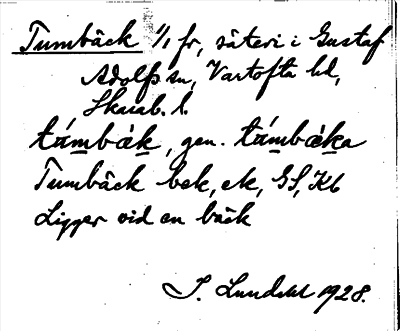 Tumbäck 1/1 fr, säteri i Gustaf
Adolfs sn, Vartofta hd,
Skarab. l.
túmbä̀k, gen. túmbä̀ka
Tumbäck bek, ek, GS, Kb
Ligger vid en bäck
J. Lundahl 1928.